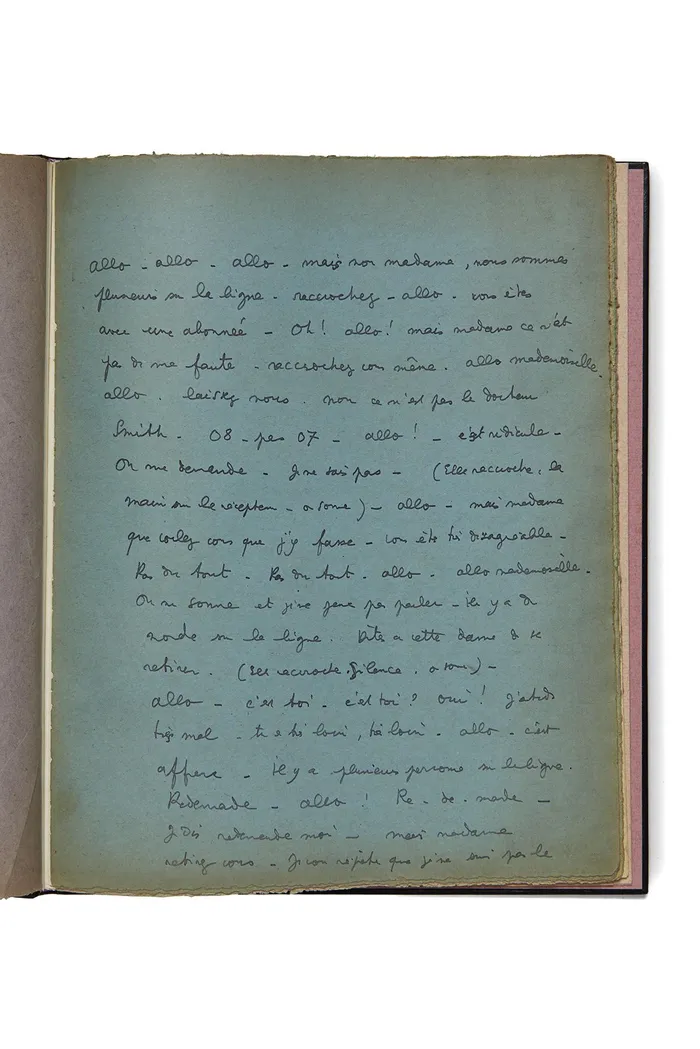 allo - allo - allo - mais non madame, nous sommes
plusieurs sur la ligne - raccrochez - allo - vous êtes
avec une abonnée - Oh! allo! mais madame ce n'est
pas de ma faute - raccrochez vous même. allo mademoiselle.
allo. laissez nous. non ce n'est pas le docteur
Smith - 08 - pas 07 - allo! - c'est ridicule -
On me demande - Je ne sais pas - (Elle raccroche, la
main sur le récepteur - on sonne) - allo - mais madame
que voulez vous que j'y fasse - vous êtes très désagréable -
Pas du tout - Pas du tout - allo - allo mademoiselle.
On me sonne et je ne peux pas parler - il y a du
monde sur la ligne. Dites a cette dame de se
retirer. (Elle raccroche. Silence. on sonne) -
allo - c'est toi - c'est toi? oui! J'entends
très mal - tu es très loin, très loin - allo - c'est
affreux - il y a plusieurs personnes sur la ligne.
Redemande - allo! Re - de - mande -
Je dis redemande moi - mais madame
retirez vous - Je vous répète que je ne suis pas le